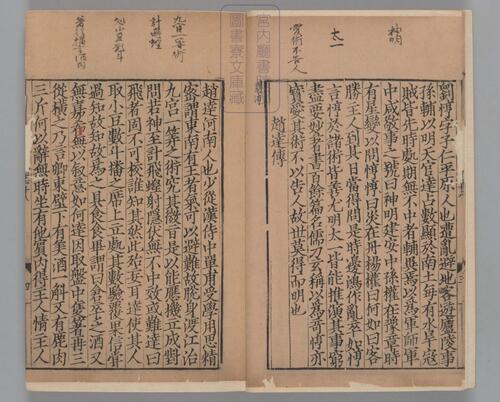 神明
太一
愛術不告人
劉惇字子仁平原人也遭亂避地客遊廬陵事
孫輔以明天官達占數顯於南土每有水旱寇
賊皆先時處期無不中者輔異焉以為軍師軍
中咸敬事之號曰神明建安中孫權在豫章時
有星變以問惇惇曰災在丹楊權曰何如曰客
勝主人到某日當得問是時邊鴻作亂卒如惇
言惇於諸術皆善尤明太一皆能推演其事窮
盡要妙著書百餘篇名儒刁玄稱以為奇惇亦
寶愛其術不以告人故世莫得而明也
趙達傳
圖書寮文庫藏
九宮一筭術
計飛蝗
處小豆數斗
趙達河南人也少從漢侍中單甫受學用思精
密謂東南有王者氣可以避難故脫身渡江治
九宮一筭之術究其微旨是以能應機立成對
問若神至計飛蝗射隱伏無不中效或難達曰
飛者固不可校誰知其然此殆妄耳達使其人
取小豆數斗播之席上立處其數驗覆果信嘗
過知故知故為之具食食畢謂曰倉卒乏酒又
無嘉肴無以叙意如何達因取盤中隻箸再三
從橫之乃言卿東壁下有美酒一斛又有鹿肉
三斤何以辭無時坐有他賓內得主人情主人